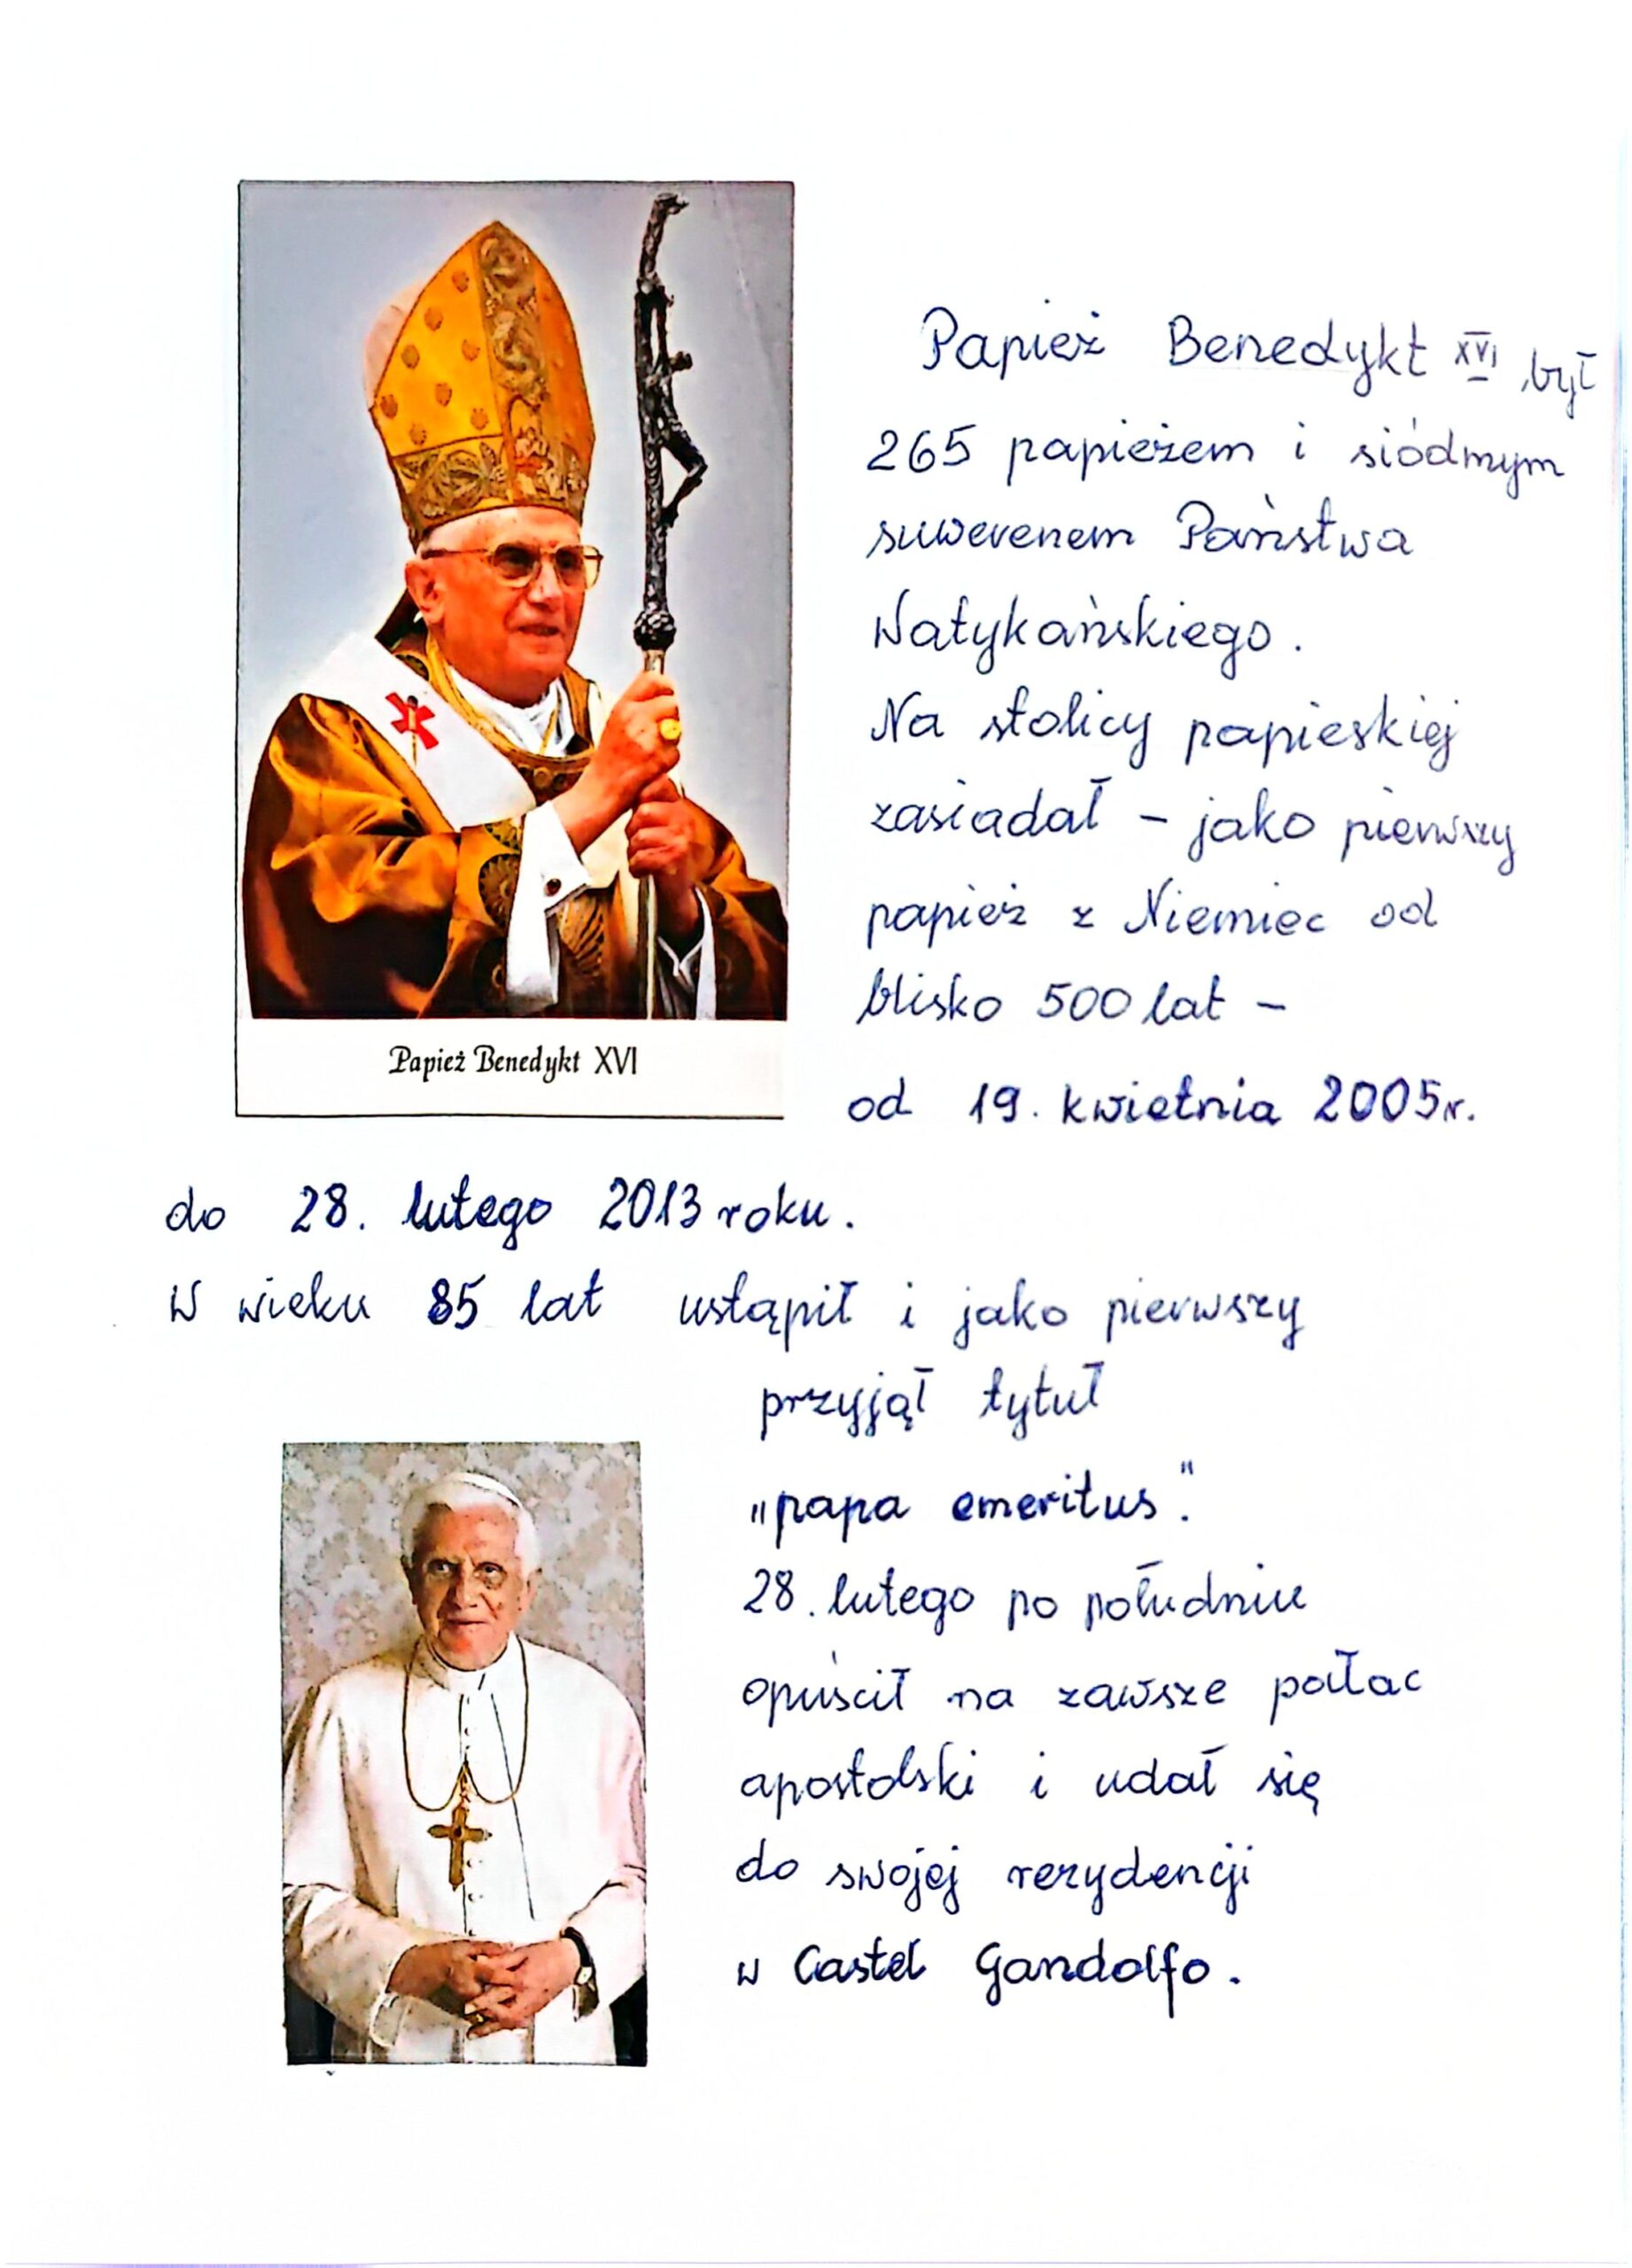 Papież Benedykt XVI był
265 papieżem i siódmym
suwerenem Państwa
Watykańskiego.
Na stolicy papieskiej
zasiadał – jako pierwszy
papież z Niemiec od
blisko 500 lat –
Papież Benedykt XVI
od 19. kwietnia 2005r.
do 28. lutego 2013 roku.
W wieku 85 lat ustąpił i jako pierwszy
przyjął tytuł
„papa emeritus".
28. lutego po południu
opuścił na zawsze pałac
apostolski i udał się
do swojej rezydencji
w Castel Gandolfo.